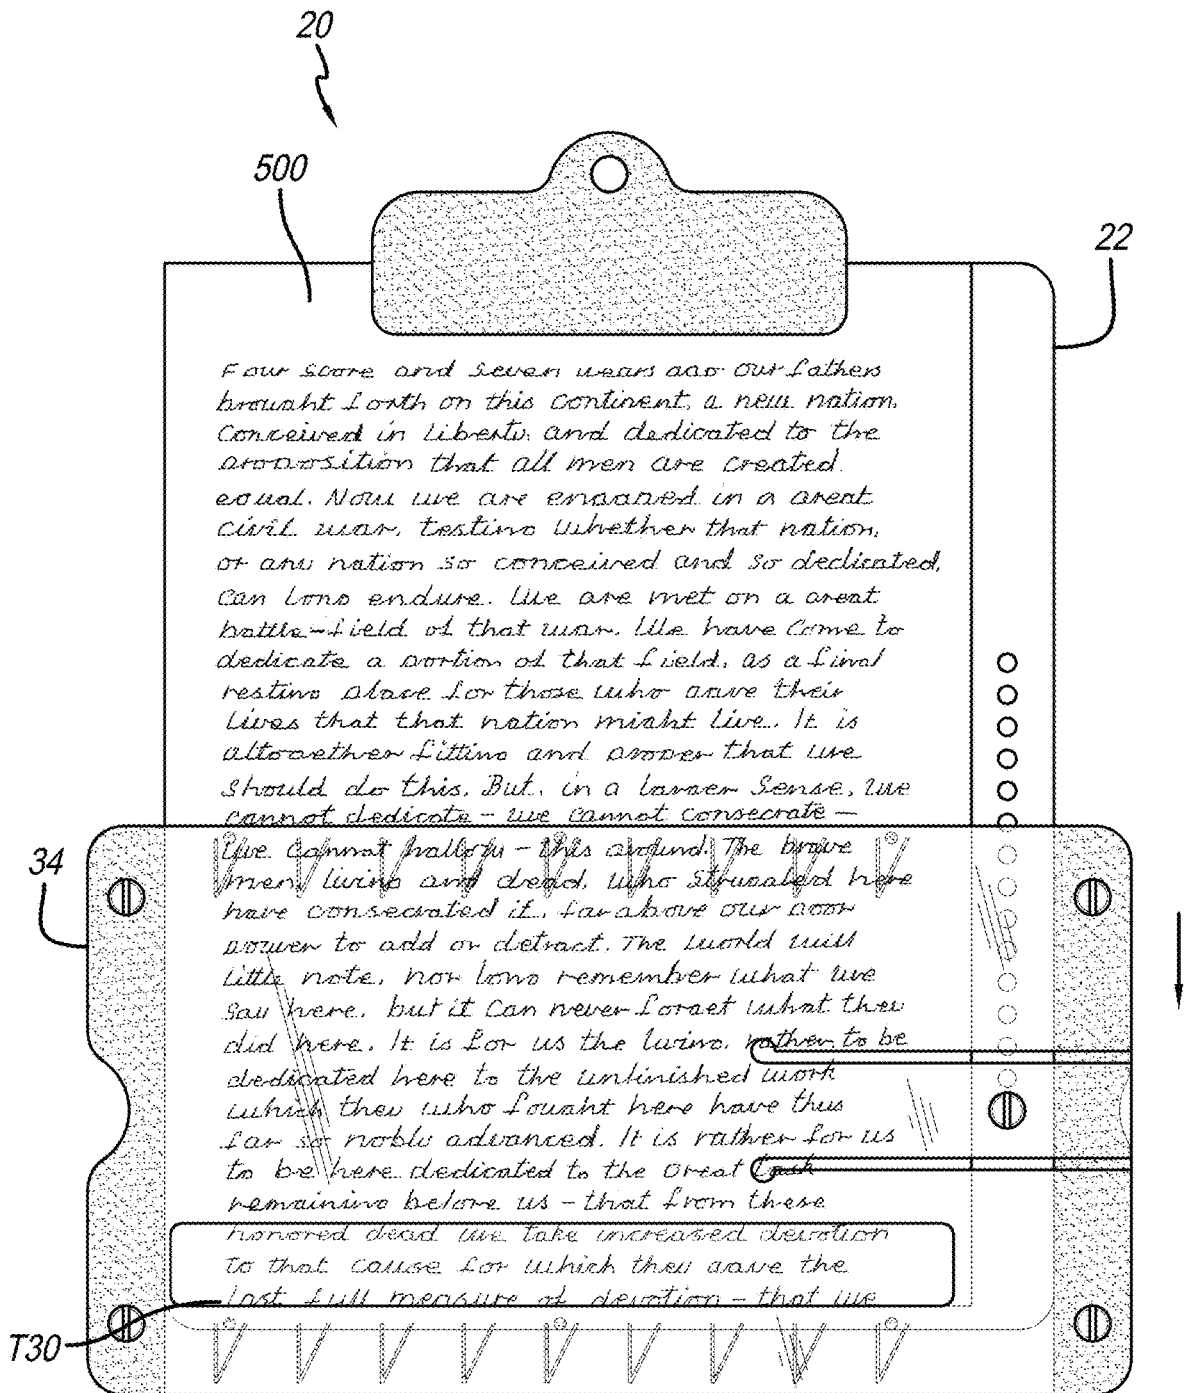 20
500
22
Four score and seven years ago our fathers
brought forth on this continent, a new nation,
conceived in liberty, and dedicated to the
proposition that all men are created
equal. Now we are engaged in a great
civil war, testing whether that nation,
or any nation so conceived and so dedicated,
can long endure. We are met on a great
battle-field of that war. We have come to
dedicate a portion of that field, as a final
resting place for those who gave their
lives that that nation might live. It is
altogether fitting and proper that we
should do this. But, in a larger sense, we
cannot dedicate - we cannot consecrate -
we cannot hallow - this ground. The brave
34
men, living and dead, who struggled here
have consecrated it, far above our poor
power to add or detract. The world will
little note, nor long remember what we
say here, but it can never forget what they
did here. It is for us the living, rather, to be
dedicated here to the unfinished work
which they who fought here have thus
far so nobly advanced. It is rather for us
to be here dedicated to the great task
remaining before us - that from these
honored dead we take increased devotion
to that cause for which they gave the
last full measure of devotion - that we
T30